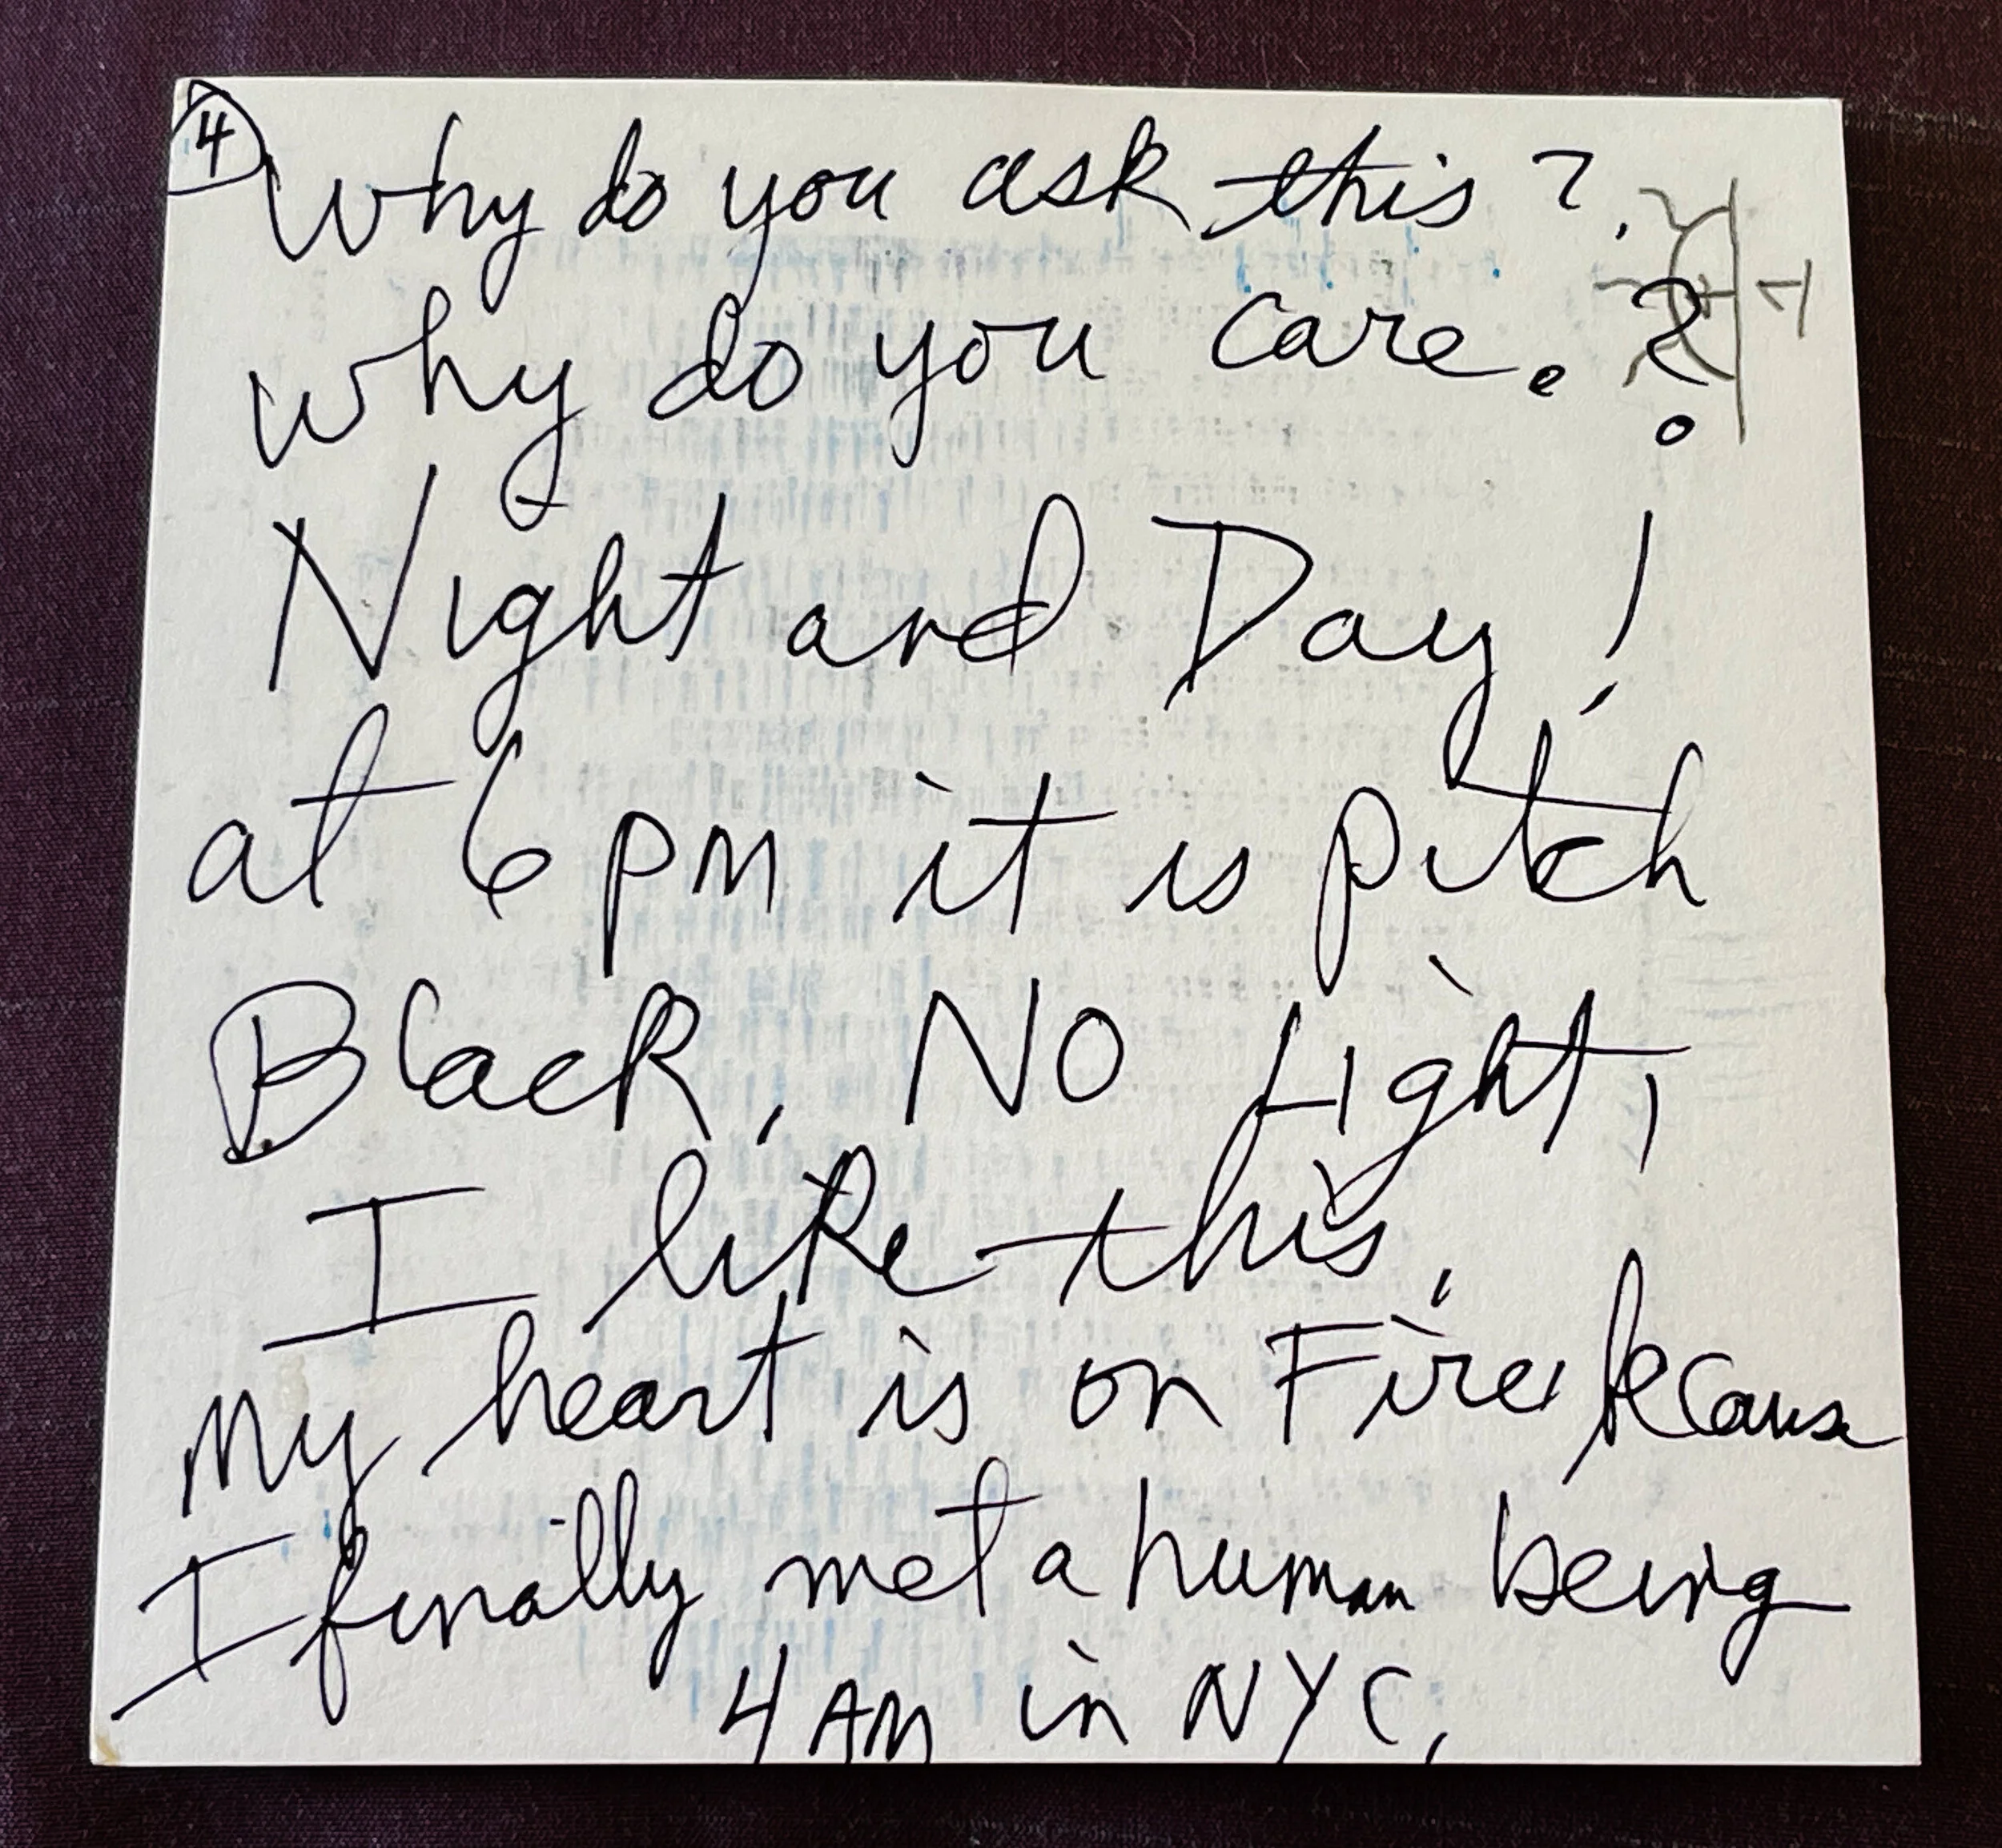 4
Why do you ask this?
why do you care. ?
Night and Day!
at 6 pm it is pitch
Black, NO Light,
I like this,
my heart is on Fire because
I finally met a human being
4 AM in NYC,